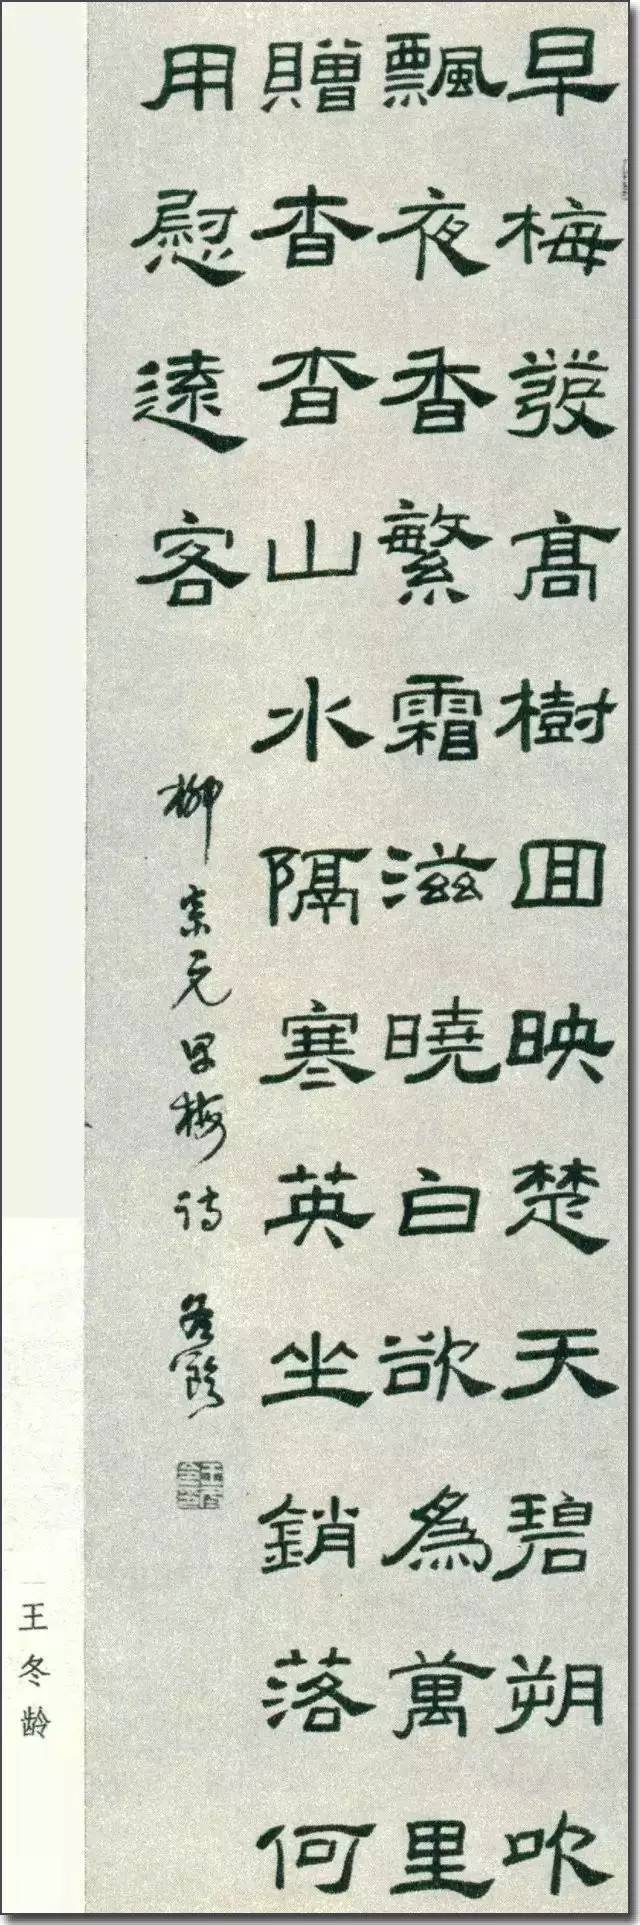 早梅發高樹回映楚天碧朔吹
飄夜香繁霜滋曉白欲為萬里
贈杳杳山水隔寒英坐銷落何
用慰遠客
柳宗元早梅诗 冬齡
王冬龄